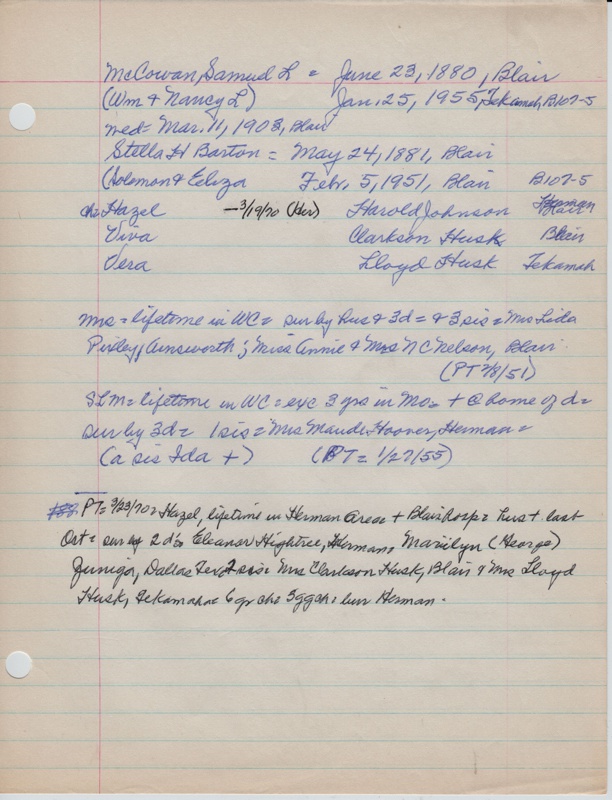 McCowan, Samuel L = June 23, 1880, Blair
(Wm & Nancy L) Jan. 25, 1955, Tekamah B107-5
wed = Mar. 11, 1903, Blair
Stella H Barton = May 24, 1881, Blair
(Solomon & Eliza Febr. 5, 1951, Blair B107-5
ch = Hazel — 3/19/70 (Her) Harold Johnson Herman
Viva Clarkson Husk Blair
Vera Lloyd Husk Tekamah
Mrs = lifetime in WC = sur by hus & 3d = & 3 sis = Mrs Lida
Pixley, Ainsworth; Miss Annie & Mrs N C Nelson, Blair
(PT 2/8/51)
SLM = lifetime in WC = exc 3 yrs in Mo = + @ home of d =
sur by 3d = 1 sis = Mrs Maude Hoover, Herman =
(a sis Ida +) (PT = 1/27/55)
PT = 3/23/70 = Hazel, lifetime in Herman area + Blair hosp = hus + last
Oct = sur by 2 d's Eleanor Hightree, Herman = Marilyn (George)
Juniga, Dallas Tex 2 sis = Mrs Clarkson Husk, Blair & Mrs Lloyd
Husk, Tekamah = 6 gr ch = 3 ggch = bur Herman.